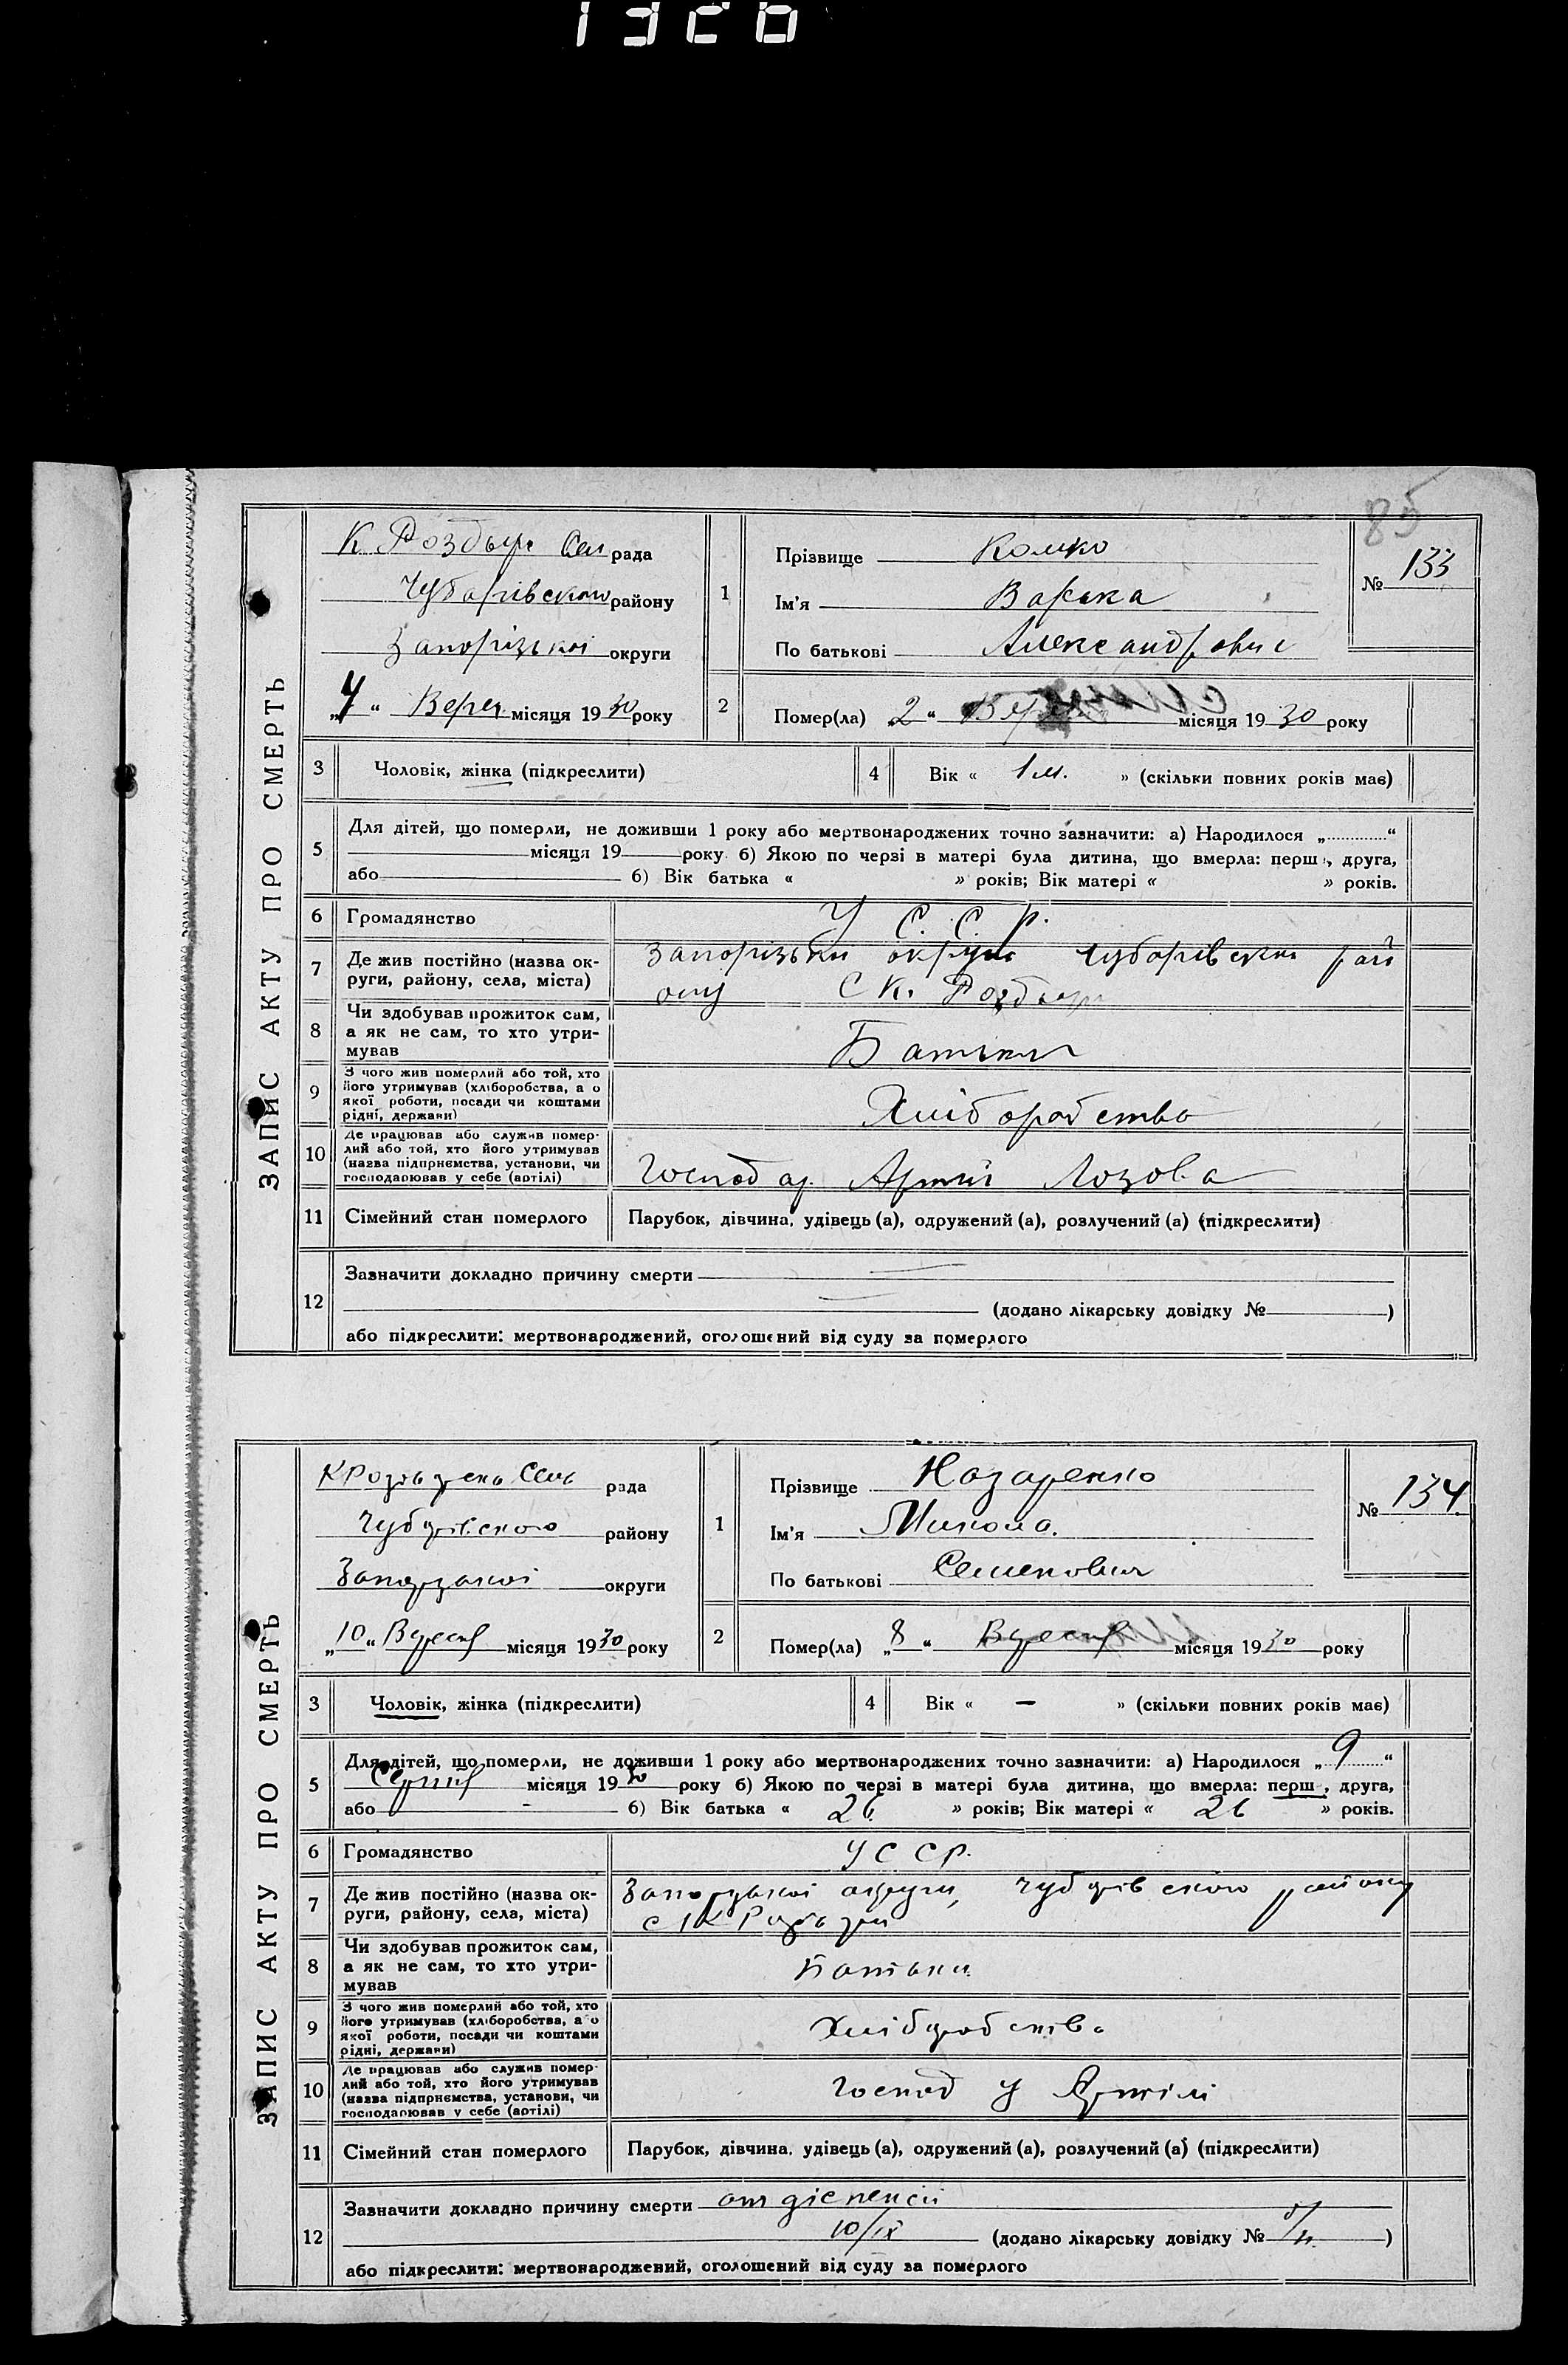 85
ЗАПИС АКТУ ПРО СМЕРТЬ
К. Роздори Сел рада
Чубарівского району
Запорізької округи
„4“ Верес місяця 1930 року
1
Прізвище Комко
Ім'я Варка
По батькові Александровис
№ 133
2
Помер(ла) „2“ місяця 1930 року
3 Чоловік, жінка (підкреслити)
4 Вік « 1 м. » (скільки повних років має)
5 Для дітей, що померли, не доживши 1 року або мертвонароджених точно зазначити: а) Народилося „ “
місяця 19 року б) Якою по черзі в матері була дитина, що вмерла: перша, друга,
або б) Вік батька « » років; Вік матері « » років.
6 Громадянство У С. С. Р.
7 Де жив постійно (назва округи, району, села, міста) Запорізьки округи Чубарівски рай
ону С К. Роздори
8 Чи здобував прожиток сам,
а як не сам, то хто утри-
мував Батьки
9 З чого жив померлий або той, хто
його утримував (хліборобства, а о
якої роботи, посади чи коштами
рідні, держави) Хліборобство
10 Де працював або служив помер-
лий або той, хто його утримував
(назва підприємства, установи, чи
господарював у себе (артілі) Господар Артілі Лозова
11 Сімейний стан померлого Парубок, дівчина, удівець (а), одружений (а), розлучений (а) (підкреслити)
12 Зазначити докладно причину смерти
(додано лікарську довідку № )
або підкреслити: мертвонароджений, оголошений від суду за померлого
ЗАПИС АКТУ ПРО СМЕРТЬ
рада
Чубарівского району
Запорізької округи
„10“ Вересня місяця 1930 року
1
Прізвище Назаренко
Ім'я Микола.
По батькові Семенович
№ 134.
2
Помер(ла) „8“ Вересня місяця 1930 року
3 Чоловік, жінка (підкреслити)
4 Вік « — » (скільки повних років має)
5 Для дітей, що померли, не доживши 1 року або мертвонароджених точно зазначити: а) Народилося „9“
Серпня місяця 1930 року б) Якою по черзі в матері була дитина, що вмерла: перш , друга,
або - б) Вік батька « 26 » років; Вік матері « 26 » років.
6 Громадянство У С С Р.
7 Де жив постійно (назва ок-
руги, району, села, міста) Запорізької округи, Чубарівского району
8 Чи здобував прожиток сам,
а як не сам, то хто утри-
мував Батьки
9 З чого жив померлий або той, хто
його утримував (хліборобства, а о
якої роботи, посади чи коштами
рідні, держави) Хліборобство
10 Де працював або служив помер-
лий або той, хто його утримував
(назва підприємства, установи, чи
господарював у себе (артілі) Господ у Артілі
11 Сімейний стан померлого Парубок, дівчина, удівець (а), одружений (а), розлучений (а) (підкреслити)
12 Зазначити докладно причину смерти от діспепсіі
10/IX (додано лікарську довідку № )
або підкреслити: мертвонароджений, оголошений від суду за померлого